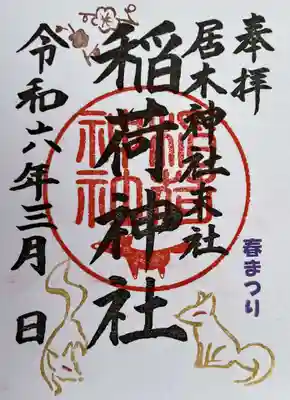 奉拝
居木神社末社
稲荷神社
令和六年三月 日
春まつり